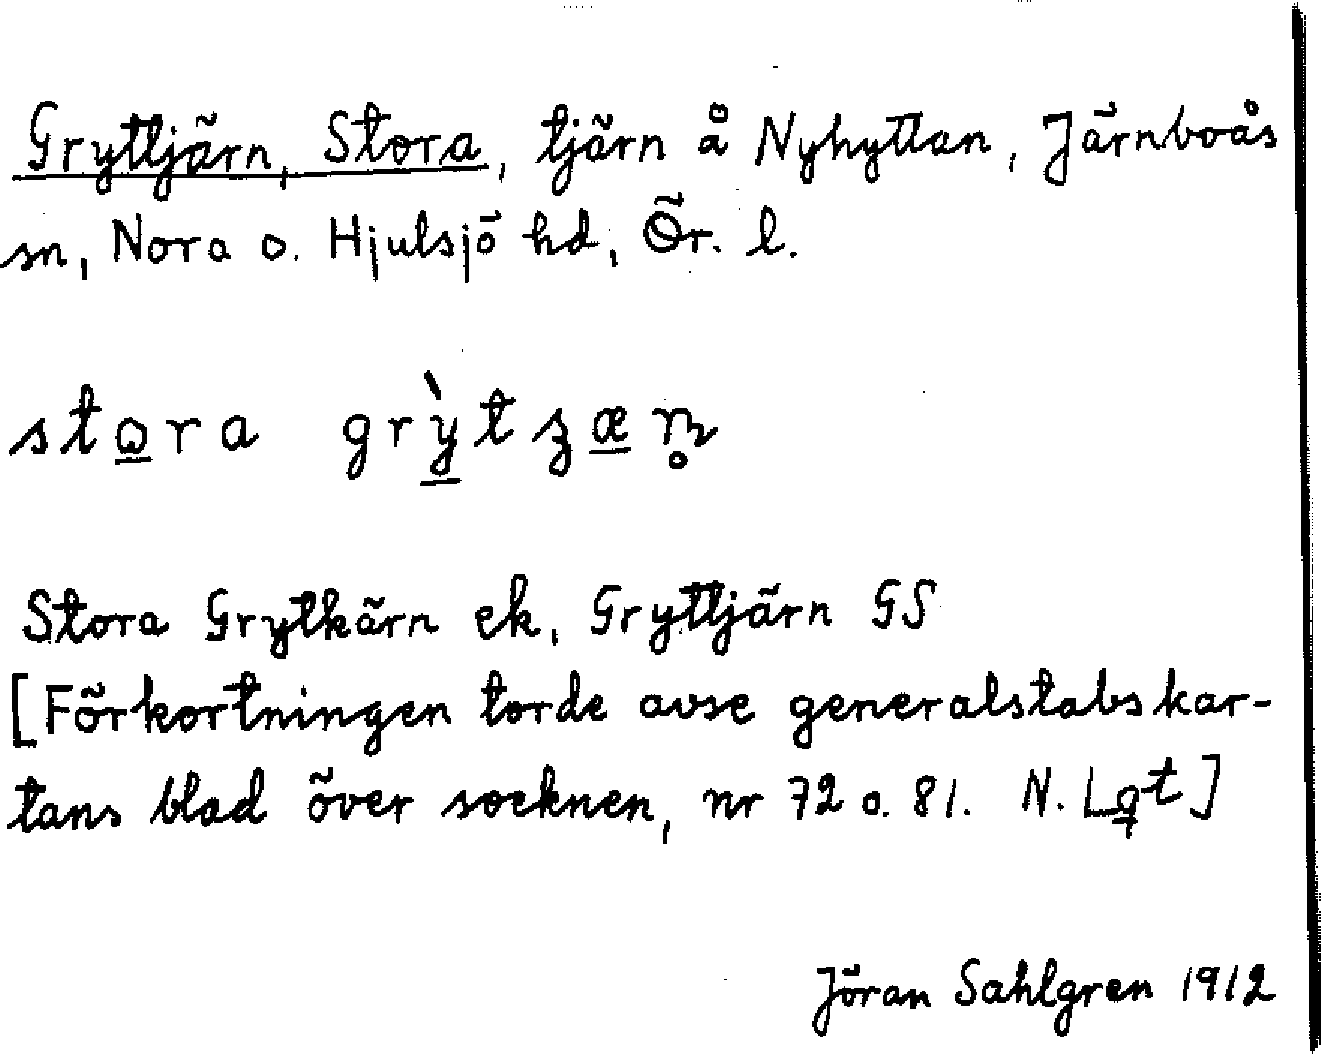 Gryttjärn, Stora, tjärn å Nyhyttan, Järnboås
sn, Nora o. Hjulsjö hd, Ör. l.
stora grỳtʒærn̥
Stora Grytkärn ek, Gryttjärn GS
[Förkortningen torde avse generalstabskar-
tans blad över socknen, nr 72 o. 81. N. Lqt]
Jöran Sahlgren 1912